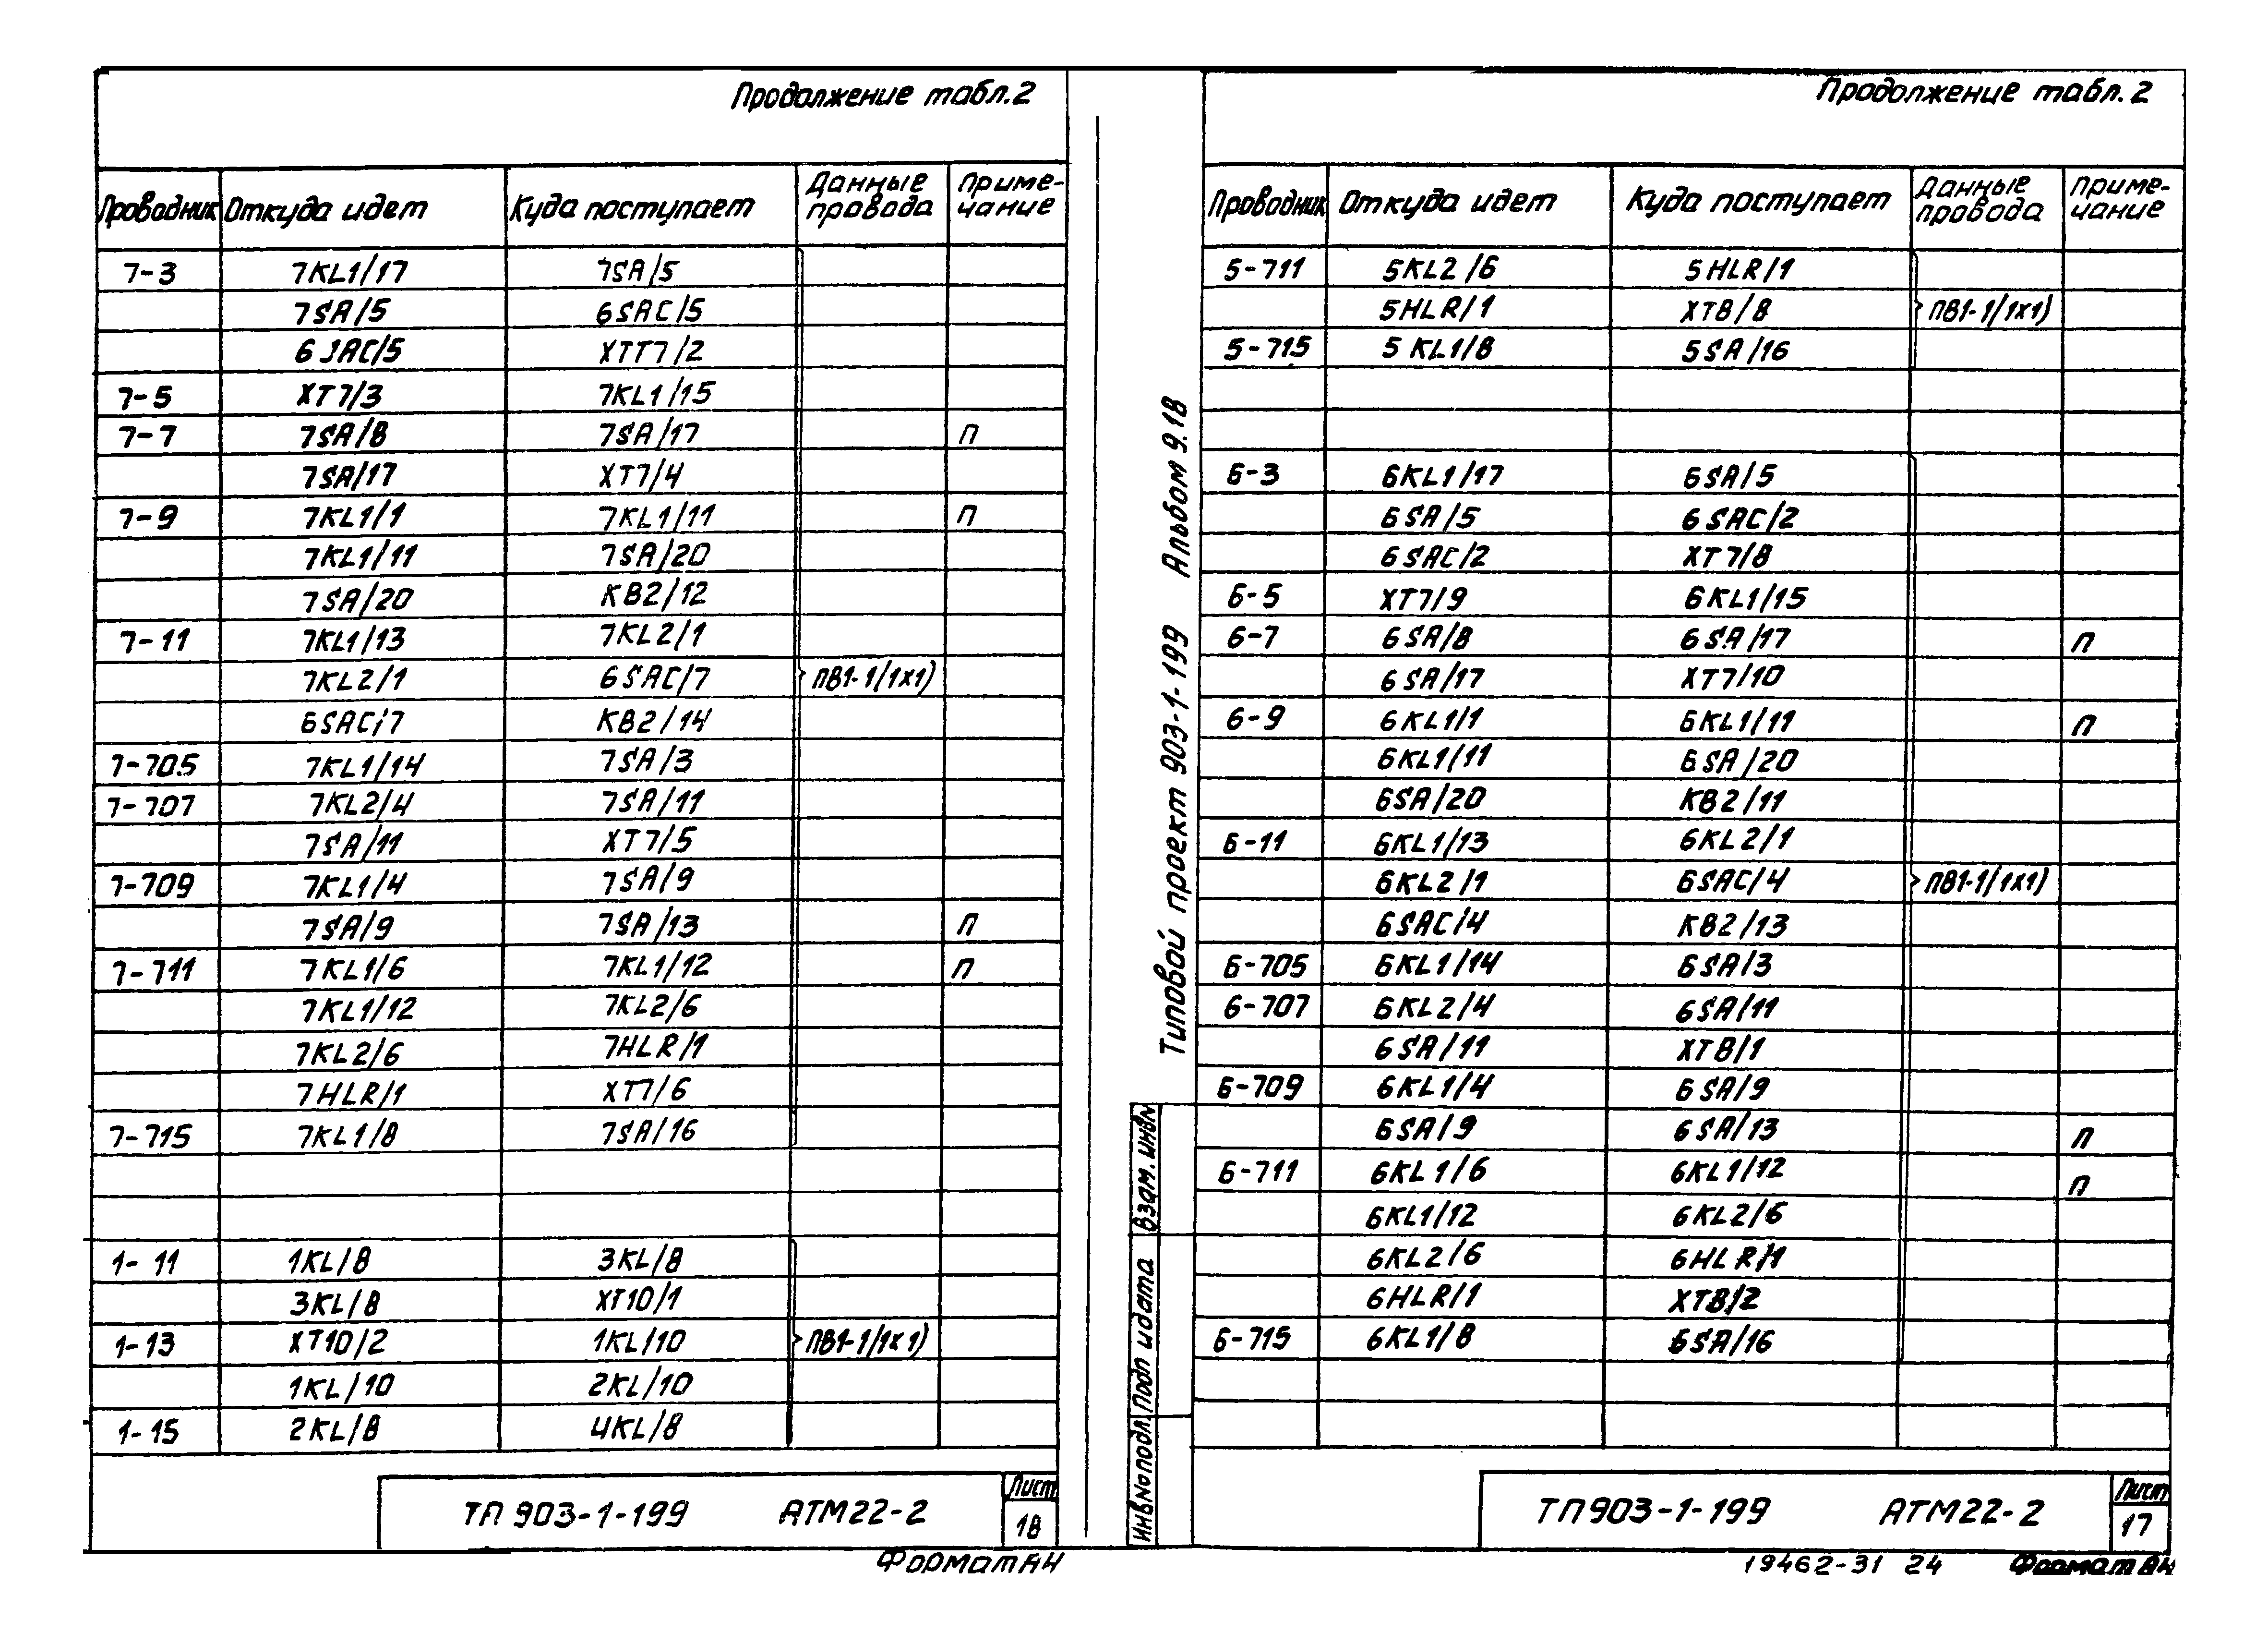 Продолжение табл.2
Проводник Откуда идет Куда поступает Данные провода Приме-чание
7-3 7KL1/17 7SA/5
7SA/5 6SAC/5
6SAC/5 XTT7/2
7-5 XT7/3 7KL1/15
7-7 7SA/8 7SA/17 П
7SA/17 XT7/4
7-9 7KL1/1 7KL1/11 П
7KL1/11 7SA/20
7SA/20 KB2/12
7-11 7KL1/13 7KL2/1
7KL2/1 6SAC/7 ПВ1-1/1х1)
6SAC/7 KB2/14
7-705 7KL1/14 7SA/3
7-707 7KL2/4 7SA/11
7SA/11 XT7/5
7-709 7KL1/4 7SA/9
7SA/9 7SA/13 П
7-711 7KL1/6 7KL1/12 П
7KL1/12 7KL2/6
7KL2/6 7HLR/1
7HLR/1 XT7/6
7-715 7KL1/8 7SA/16
1-11 1KL/8 3KL/8
3KL/8 XT10/1
1-13 XT10/2 1KL/10 ПВ1-1/1х1)
1KL/10 2KL/10
1-15 2KL/8 4KL/8
ТП 903-1-199 АТМ22-2 Лист 18
Формат А4
Типовой проект 903-1-199 Альбом 9.18
Инв№подл. Подп и дата Взам.инв№
Продолжение табл.2
Проводник Откуда идет Куда поступает Данные провода Приме-чание
5-711 5KL2/6 5HLR/1
5HLR/1 XT8/8 ПВ1-1/1х1)
5-715 5KL1/8 5SA/16
6-3 6KL1/17 6SA/5
6SA/5 6SAC/2
6SAC/2 XT7/8
6-5 XT7/9 6KL1/15
6-7 6SA/8 6SA/17 П
6SA/17 XT7/10
6-9 6KL1/1 6KL1/11 П
6KL1/11 6SA/20
6SA/20 KB2/11
6-11 6KL1/13 6KL2/1
6KL2/1 6SAC/4 ПВ1-1/1х1)
6SAC/4 KB2/13
6-705 6KL1/14 6SA/3
6-707 6KL2/4 6SA/11
6SA/11 XT8/1
6-709 6KL1/4 6SA/9
6SA/9 6SA/13 П
6-711 6KL1/6 6KL1/12 П
6KL1/12 6KL2/6
6KL2/6 6HLR/1
6HLR/1 XT8/2
6-715 6KL1/8 6SA/16
ТП903-1-199 АТМ22-2 Лист 17
19462-31 24 Формат А4